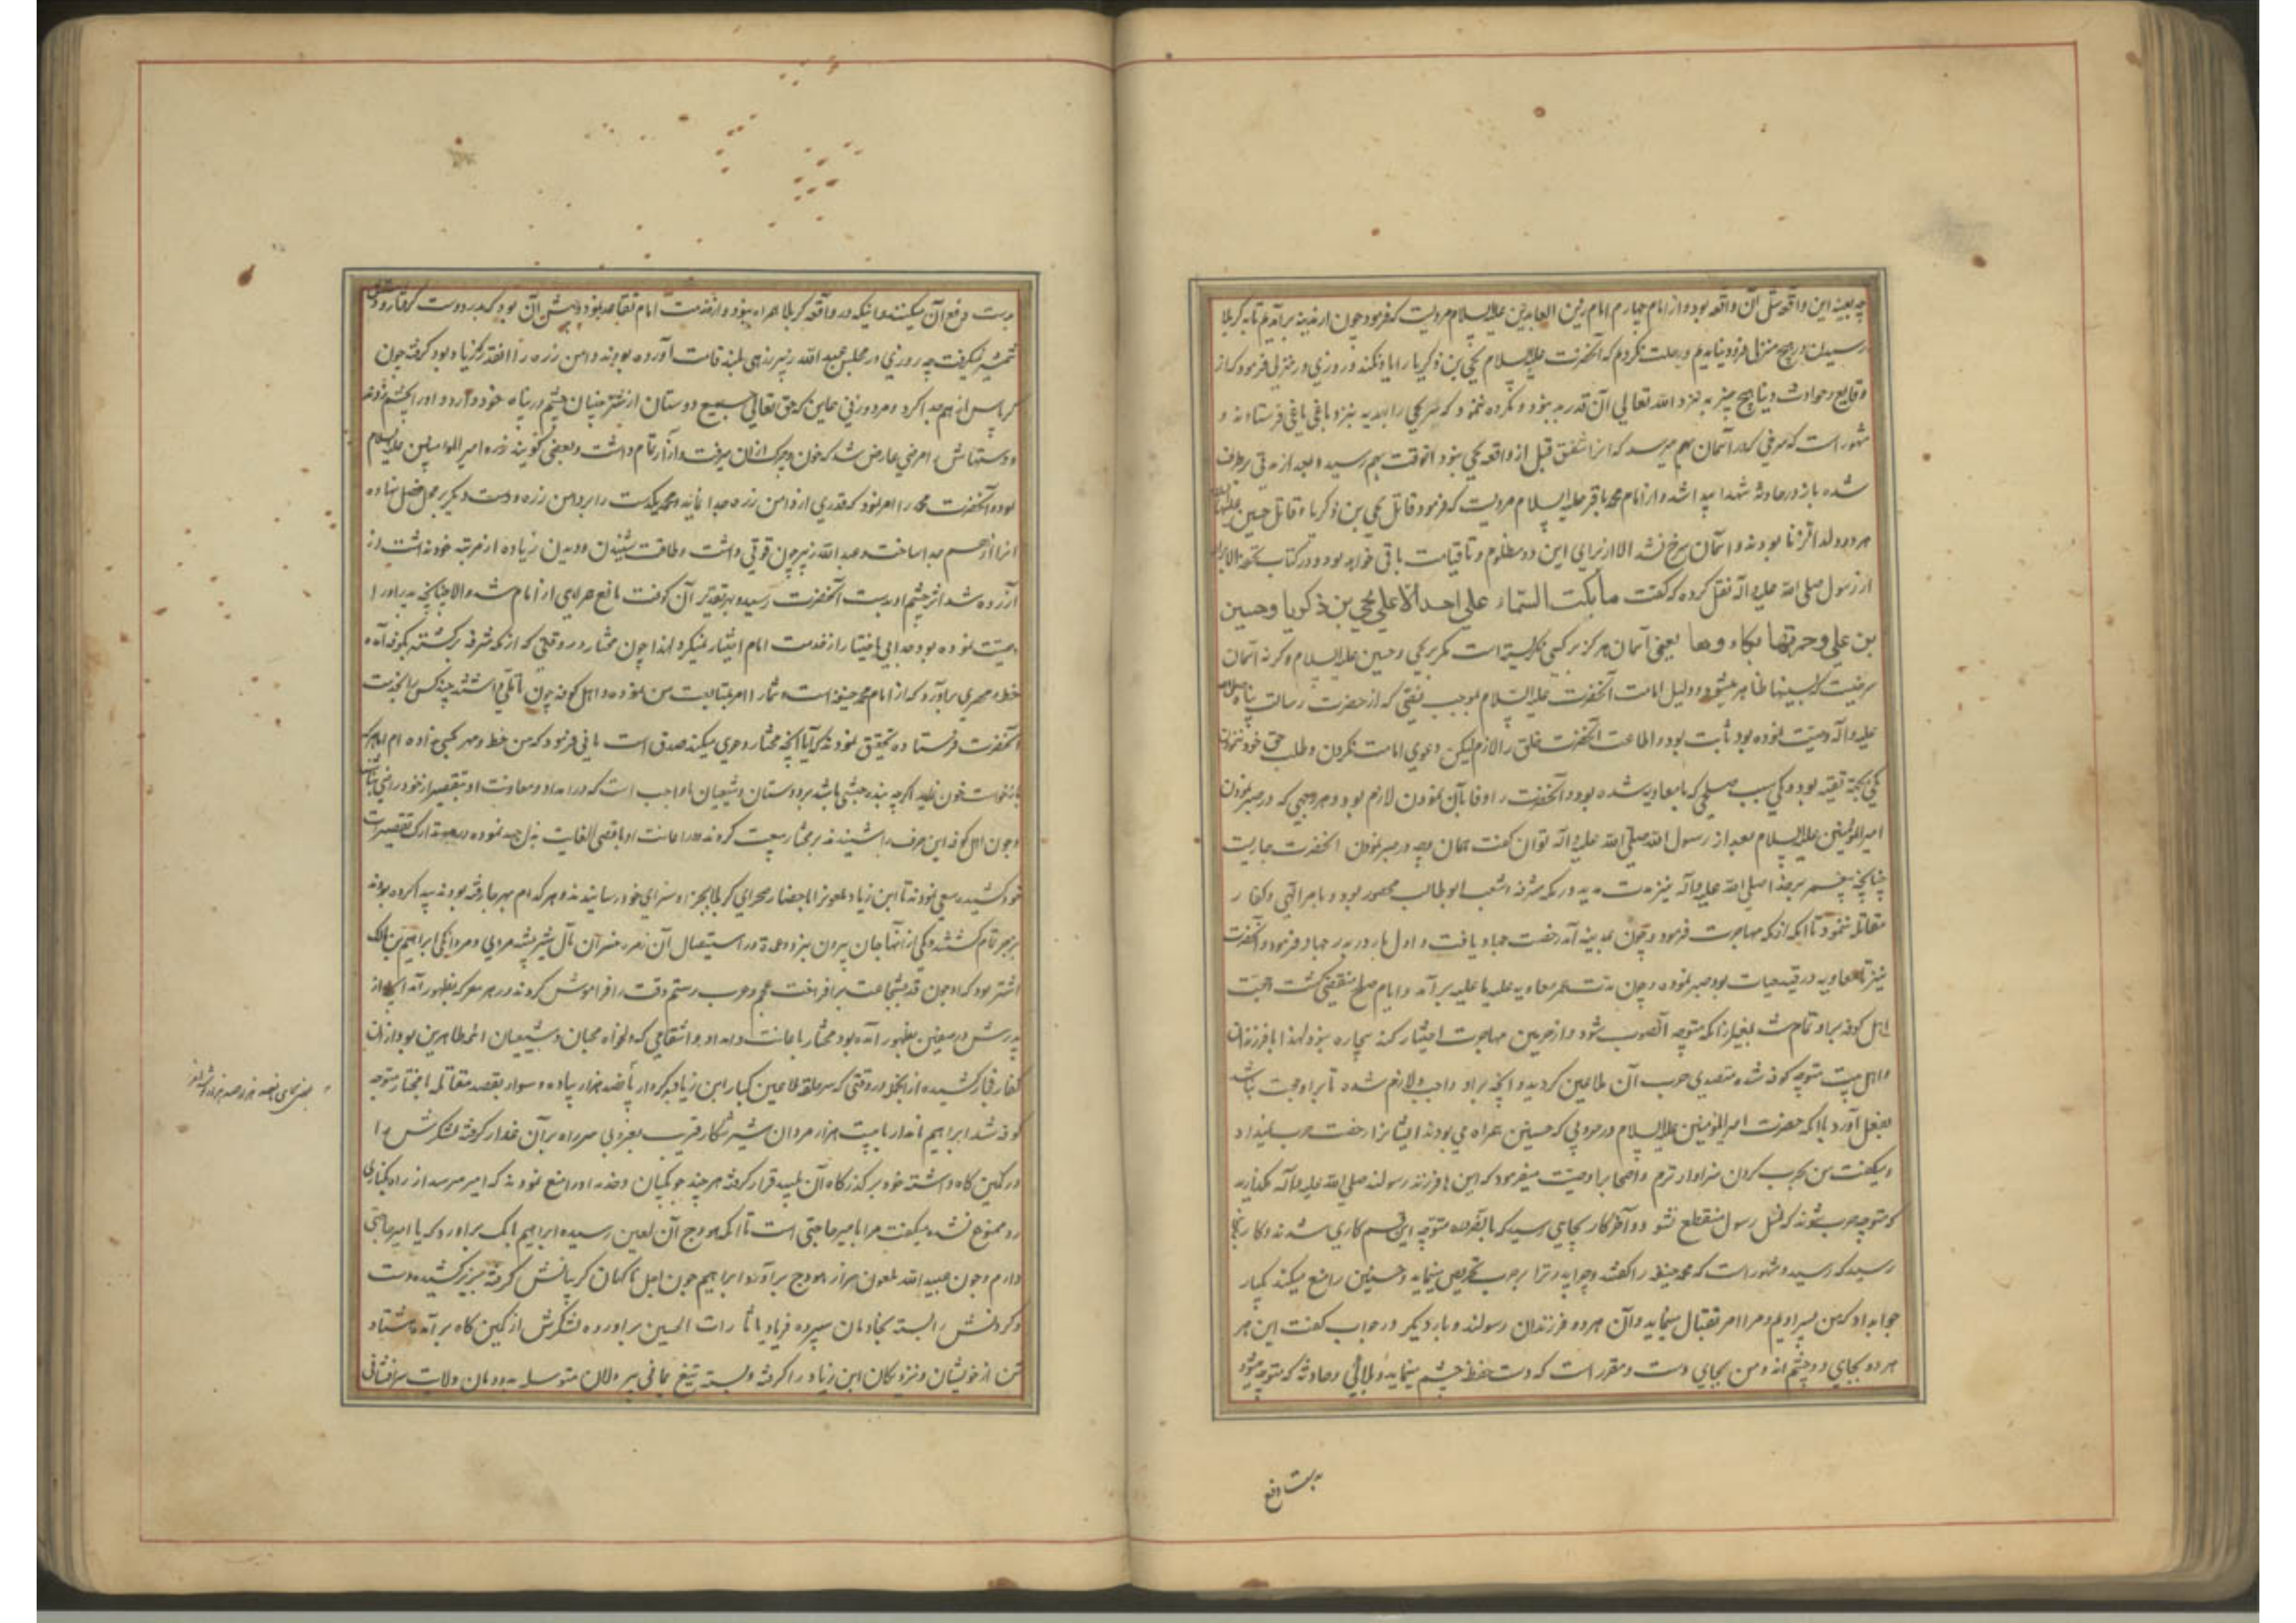 چه بعینه این واقعه مثل آن واقعه بود و از امام چهارم امام زین العابدین علیه السلام مرویست که فرمود چون از مدینه برآمدیم تا به کربلا
رسیدن در هیچ منزلی فرود نیامدیم و رحلت نکردیم که آنحضرت علیه السلام یحیی بن زکریا را یاد نکند و روزی در منزلی فرمود که از
وقایع و حوادث دنیا هیچ چیز به نزد الله تعالی آن قدر بد نبود و مکروه ننمود که سر یحیی را بهدیه بنزد باغی یاغی فرستادند و
مشهور است که سرخی که در آسمان بهم میرسد که انرا شفق قبل از واقعه یحیی نبود انوقت بهم رسید و بعد از مدتی برطرف
شده باز در حادثه شهدا پیدا شد و از امام محمد باقر علیه السلام مرویست که فرمود قاتل یحیی بن زکریا و قاتل حسین علیهما السلام
هر دو ولد الزنا بودند و آسمان سرخ نشد الا از برای این دو مظلوم و تا قیامت باقی خواهد بود و در کتاب
از رسول صلی الله علیه و آله نقل کرده که گفت ما بکت السماء علی احد الا علی یحیی بن زکریا و حسین
بن علی و حمرتها بکاءوها یعنی آسمان هرگز بر کسی نگریسته است مگر بر یحیی و حسین علیه السلام و گرنه آسمان
ظاهر میشود و دلیل امامت آنحضرت علیه السلام بموجب نصی که از حضرت رسالت پناه صلی الله
علیه و آله وصیت نموده بود ثابت بود و اطاعت آنحضرت خلق را لازم لیکن دعوی امامت نکردن و طلب حق خود ننمودن
یکی بجهة تقیه بود و یکی بسبب صلحی که با معاویه شده بود و آنحضرت را وفا بآن نمودن لازم بود و هر وجهی که در صبر نمودن
امیر المؤمنین علیه السلام بعد از رسول الله صلی الله علیه و آله توان گفت همان وجه در صبر نمودن آنحضرت جاریست
چنانچه پیغمبر خدا صلی الله علیه و آله نیز مدت مدید در مکه مشرفه در شعب ابو طالب محصور بود و بامر الهی با کفار
مقاتله ننمود تا آنکه از مکه مهاجرت فرمود و چون بمدینه آمد رخصت جهاد یافت و اول بار در بدر جهاد فرمود و آنحضرت
نیز تا معاویه در قید حیات بود صبر نموده و چون مدت عمر معاویه علیه ما علیه برآمد و ایام صلح منقضی گشت و حجت
اهل کوفه بر او تمام شد بغیر از آنکه متوجه آنصوب شود و از حرمین مهاجرت اختیار کند چاره نبود لهذا با فرزندان
و اهل بیت متوجه کوفه شده متصدی حرب آن طاعین گردید و آنچه بر او واجب و لازم شده تا بر او حجت نباشد
بفعل آورد با آنکه حضرت امیر المؤمنین علیه السلام در حروبی که حسنین همراه می بودند ایشانرا رخصت حرب نمیداد
و میگفت من بحرب کردن سزاوارترم و اصحاب را وصیت میفرمود که این ها فرزند رسولند صلی الله علیه و آله مگذارید
که متوجه حرب شوند که نسل رسول منقطع نشود و آخر کار بجای رسید که بالضروره متوجه این قسم کاری شدند و کار بجا
رسید که رسید و مشهور است که محمد حنفیه را گفتند چرا پدر ترا بر حرب تحریص مینماید و حسنین را منع میکند یکبار
جواب داد که من پسر اویم و مرا امر بقتال مینماید و آن هر دو فرزندان رسولند و بار دیگر در جواب گفت این هر
هر دو بجای دو چشم اند و من بجای دست و مقرر است که دست حفظ چشم مینماید و بلائی و حادثه که متوجه میشود
بدست دفع
بدست دفع آن میکنند و اینکه در واقعه کربلا همراه نبود و از خدمت امام تقاعد نمود دلیلش آن بود که بدر دوست گرفتار و دستش
شمشیر نمیگرفت چه روزی در مجلس عبد الله زبیر زرهی بلند قامت آورده بودند و دامن زره را انقدر که زیاد بود گرفته چون
کرپاس از هم جدا کرد و مردی در آن زمان که حق تعالی جمیع دوستان از شر چنان چشم در پناه خود دارد او را بچشم زدند
و دستهاش را مرضی عارض شد که خون و چرک از آن میرفت و آزار تمام داشت و بعضی گویند زره امیر المؤمنین علیه السلام
بود و آنحضرت محمد را امر نمود که قدری از دامن زره جدا نماید و محمد یکدست را بر دامن زره و دست دیگر بر محل فصل نهاده
انرا از هم جدا ساخت و عبد الله زبیر چون قوتی داشت و طاقت شنیدن و دیدن زیاده از مرتبه خود نداشت
آزرده شد اثر چشم او بدست آنحضرت رسید و بهر تقدیر آن کوفت مانع همراهی از امام شد و الا چنانچه پدر او را
وصیت نموده بود جدایی باختیار از خدمت امام اختیار نمیکرد لهذا چون مختار در وقتی که از مکه مشرفه برگشته بکوفه آمده
خط و مهری برآورد که از امام محمد حنفیه است و شما را امر بمتابعت من نموده و اهل کوفه چون تأملی داشتند چند کس را بخدمت
آنحضرت فرستاده تحقیق نمودند که آیا آنچه مختار دعوی میکند صدق است یا نی فرمود که من خط و مهر بکسی نداده ام اما هر که
بازخواست خون نماید اگرچه بنده حبشی باشد بر دوستان و شیعیان ما واجب است که در امداد و معاونت او بتقصیر از خود راضی نباشند
و چون اهل کوفه این حرف را شنیدند بر مختار بیعت کردند و در اعانت او باقصی الغایت بذل جهد نموده در صدد تدارک تقصیرات
خود کشیده سعی نمودند تا ابن زیاد ملعون را با حضار صحرای کربلا بجزا و سزای خود رسانیدند و هر کدام بهر جا رفته بودند پیدا کرده بودند
بزجر تمام کشتند و یکی از آنها جان بیرون نبرد و عمده در استیصال آن زمره خسران مآل شیر بیشه مردی و مردانگی ابراهیم بن مالک
اشتر بود که او چون قد بشجاعت برافراخت عجم و عرب رستم وقت را فراموش کردند و در هر معرکه بظهور آمد آنچه از
پدرش در صفین بظهور آمده بود مختار باعانت و امداد او انتقامی که دلخواه محبان و شیعیان ائمه طاهرین بود از آن
کفار فجار کشیده از آنجمله در وقتی که سر حلقه طاعین کبار ابن زیاد بدکردار با ضد هزار پیاده و سوار بقصد مقاتله با مختار متوجه
کوفه شد ابراهیم نامدار با بیست هزار مردان شیر شکار قریب بغروبی سر راه بر آن غدار گرفته لشکرش را
در کمین گاه داشته خود بر گذرگاه آن پلید قرار گرفته هر چند چوبکیان و خدمه او را منع نمودند که امیر میرسد از راه بکناری
رو ممنوع نشده میگفت مرا با میر حاجتی است تا آنکه هودج آن لعین رسیده ابراهیم بانگ برآورد که یا امیر حاجتی
دارم و چون عبید الله ملعون سر از هودج برآورد ابراهیم چون اجل ناگهان گریبانش گرفته بزیر کشیده دست
و گردنش را بسته بخادمان سپرده فریاد یا ثارات الحسین برآورده لشکرش از کمین گاه برآمده هشتاد
تن از خویشان و نزدیکان ابن زیاد را گرفته و بسته تیغ یمانی بیر دلان متوسل بدودمان ولایت سرافشانی